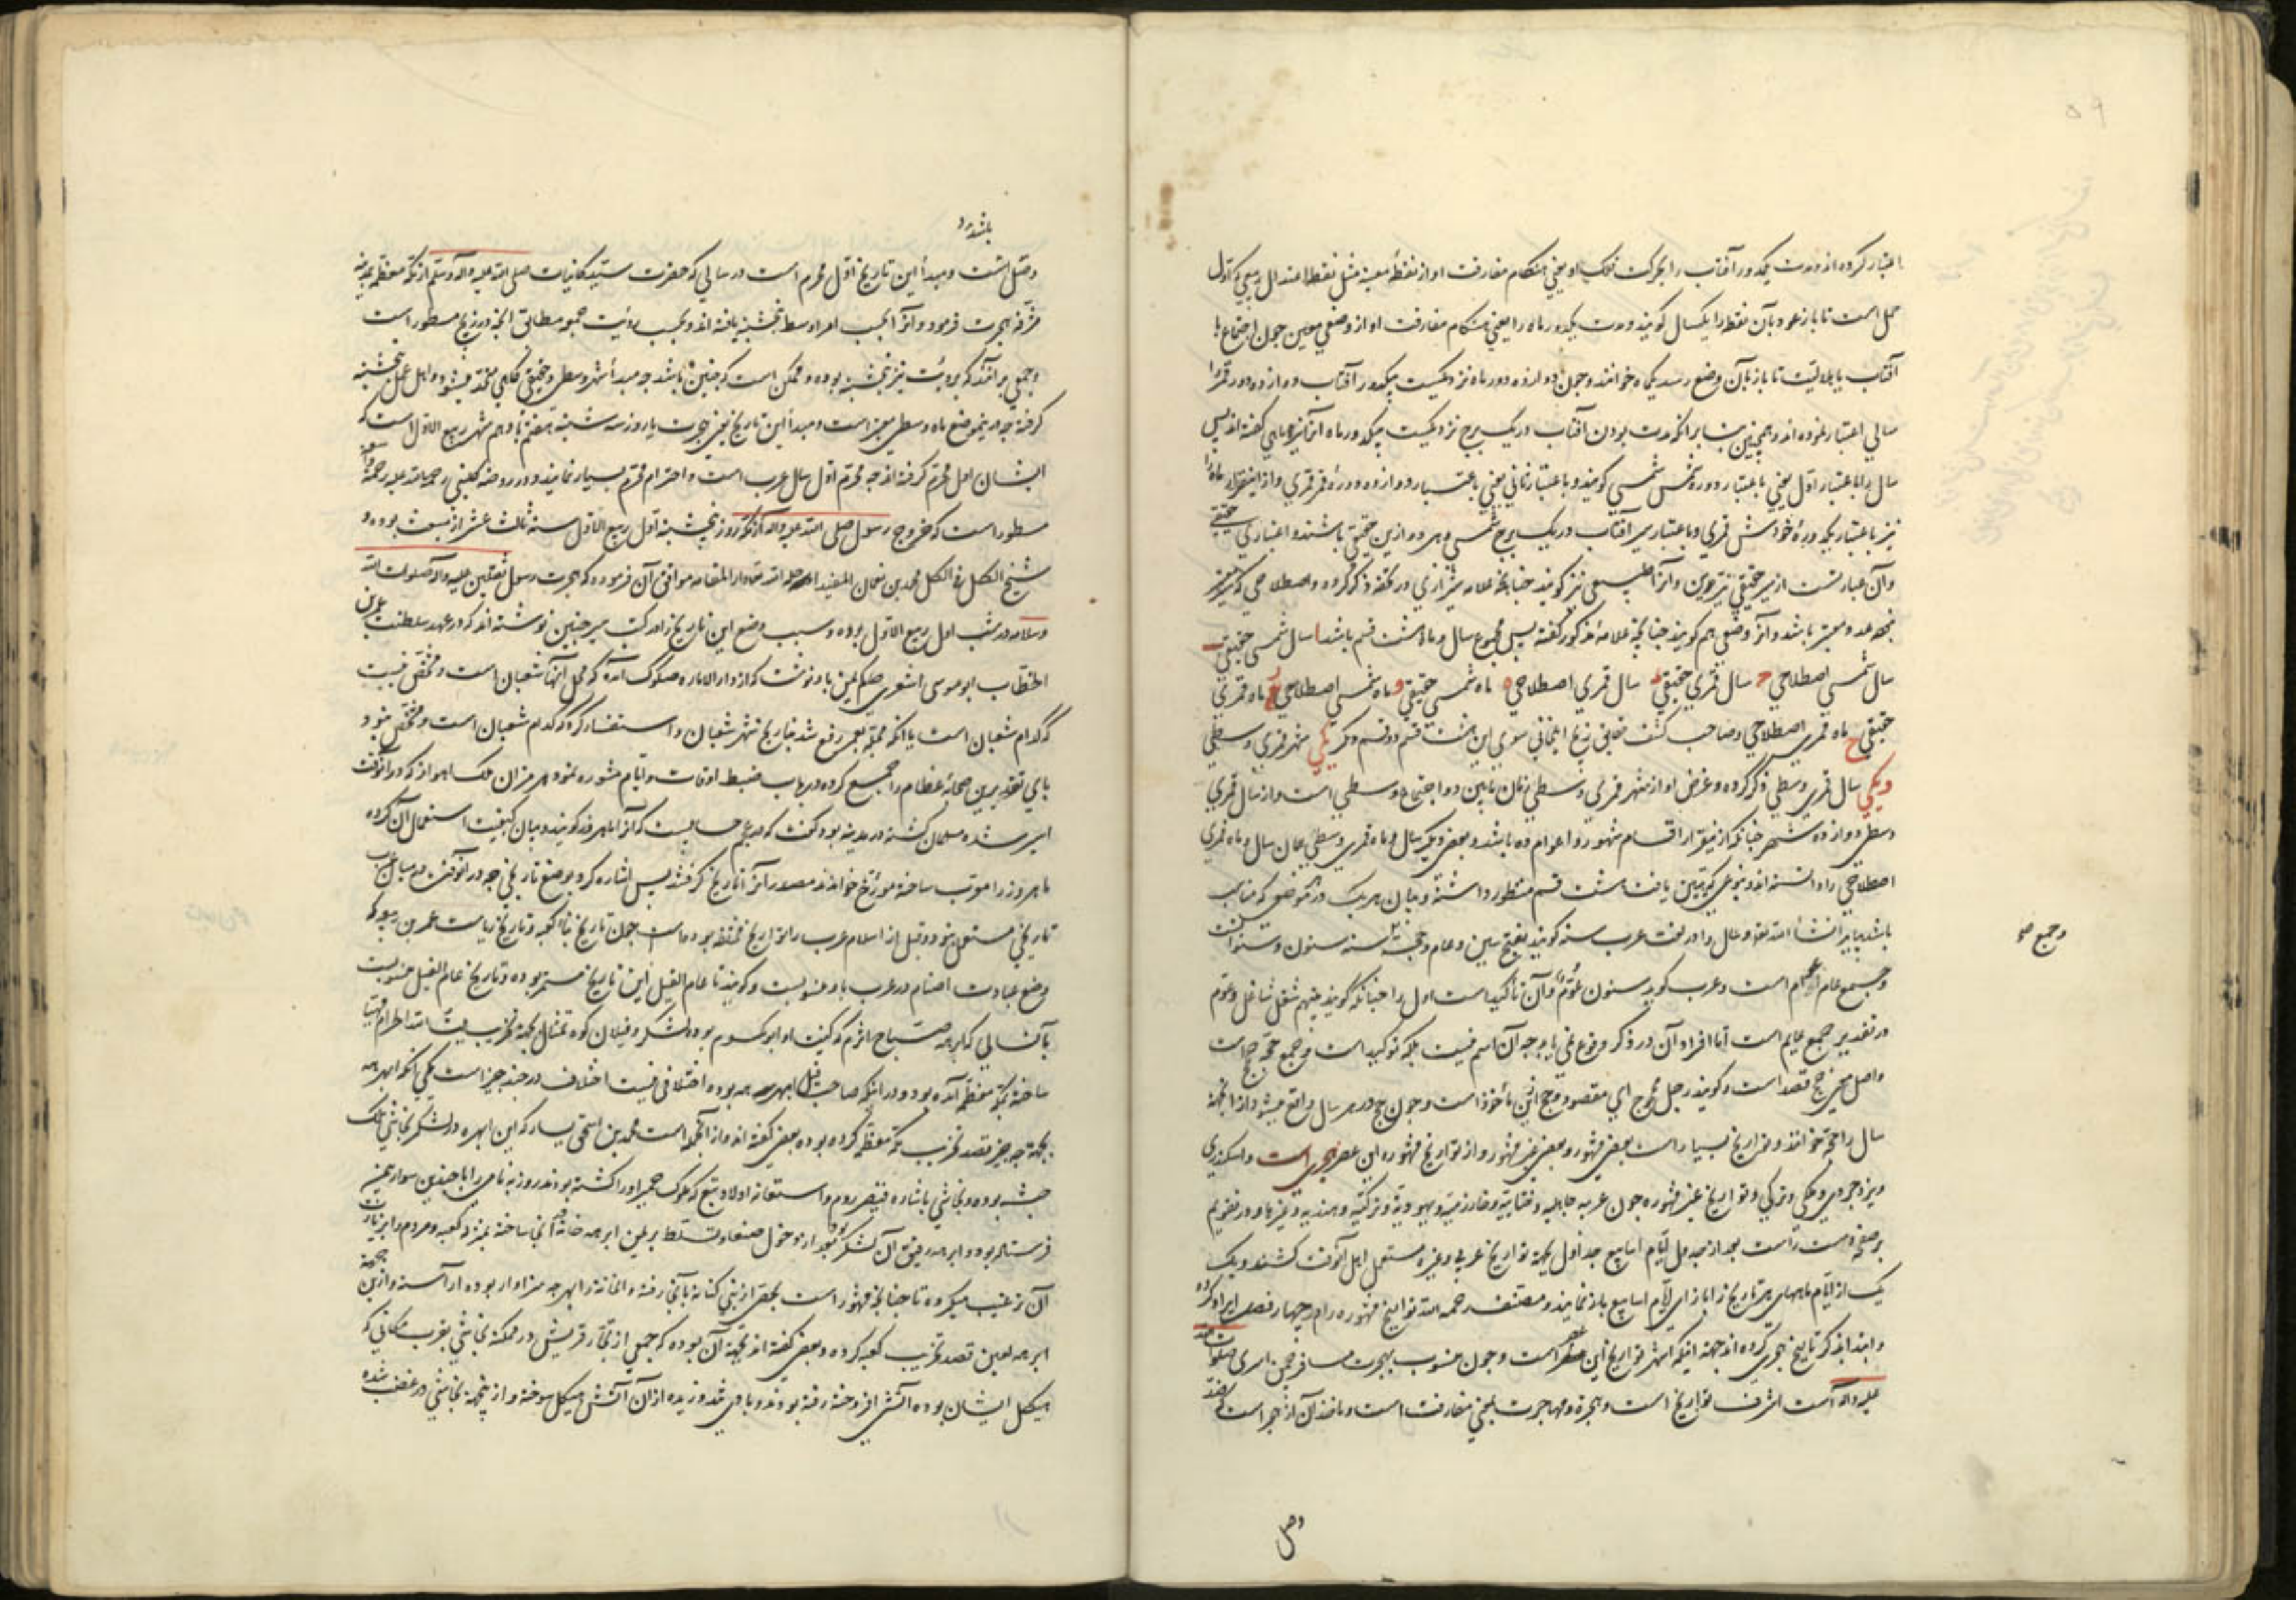 اعتبار کرده اند و مدت یکدور آفتاب را بحرکت فلک او یعنی هنگام مفارقت او از نقطهٔ معینه مثل نقطه اعتدال ربیعی که اول
حمل است تا باز عود بآن نقطه را یکسال گویند و مدت یکدور ماه را یعنی هنگام مفارقت او از وضعی معین چون اجتماع با
آفتاب یا هلالیت تا باز بآن وضع رسد یکماه خوانند و چون دوازده دور ماه نزدیکست بیکدور آفتاب دوازده دور قمر را
سالی اعتبار نموده اند و همچنین بنا برآنکه مدت بودن آفتاب در یک برج نزدیکست بیکدور ماه آنرا نیز ماهی گفته اند پس
سال را باعتبار اول یعنی باعتبار دوره شمس شمسی گویند و باعتبار ثانی یعنی باعتبار دوازده دورهٔ قمر قمری و ازینقرار ماه را
نیز باعتبار یکدورهٔ خودش قمری و باعتبار سیر آفتاب در یک برج شمسی و هر دو ازین حقیقی باشند و اعتباری حقیقی
وآن عبارتست از سیر حقیقی نیرین و آنرا طبیعی نیز گویند چنانچه علامه شیرازی در تحفه ذکر کرده و اصطلاحی که
عدد معتبر باشد و آنرا وضعی هم گویند چنانچه علامهٔ مذکور گفته پس مجموع سال و ماه هشت قسم باشد ا سال شمسی حقیقی ب
سال شمسی اصطلاحی ج سال قمری حقیقی د سال قمری اصطلاحی ه ماه شمسی حقیقی و ماه شمسی اصطلاحی ز ماه قمری
حقیقی ح ماه قمری اصطلاحی و صاحب کشف حقایق زیج ایلخانی سوی این هشت قسم دو قسم دیگر یکی شهر قمری وسطی
و یکی سال قمری وسطی ذکر کرده و غرض او از شهر قمری وسطی زمان مابین دو اجتماع وسطی است و از سال قمری
وسطی دوازده شهر چنانکه ازینقرار اقسام شهور و اعوام ده باشد و بعضی دیگر سال و ماه قمری وسطی همان سال و ماه قمری
اصطلاحی را دانسته اند و بنوعی که تبیین یافت هشت قسم منظور داشته و بیان هریک در موضعی که مناسب
باشد بیاید انشاء الله تعالی و سال را در لغت عرب سنه گویند بفتح سین و عام و حجة سنه سنون و سنوات
وجمع عام اعوام است و عرب گوید سنون عُوّم و آن تاکید است اول را چنانکه گویند بینهم شغل شاغل و عوم
در تقدیر جمع عایم است اما افراد آن در ذکر وقوع نمی یابد چه آن اسم نیست بلکه توکید است و جمع حجة حجج است
و اصل معنی حج قصد است و گویند رجل محجوج ای مقصود و حج ازین ماخوذ است و چون حج در هر سال واقع میشود ازانجهة
سال را حجة خوانند و تواریخ بسیار است بعضی مشهور و بعضی غیر مشهور و از تواریخ مشهوره این عصر هجری است و اسکندری
و یزدجردی و ملکی و ترکی و تواریخ غیر مشهوره چون عربیه جاهلیه و ختاییه و خوارزمیه و یهودیة و ترکیه و هندیه و غیرها و در تقویم
بر صفحه دست راست بعد از جدول ایام اسابیع جداول بجهة تواریخ عربی و غیره مستعمل اهل آنوقت کشند و یک
یک از ایام ماههای هر تاریخ را بازای ایام اسابیع باز نمایند و مصنف رحمه الله تواریخ مشهوره را در چهار فصل ایراد کرده
و ابتدا بذکر تاریخ هجری کرده اند جهة اینکه اشهر تواریخ این عصر است و چون منسوب بهجرت مسافر اسری صلوات الله
علیه و آله است اشرف تواریخ است و هجرة و مهاجرت بمعنی مفارقت است و ماخذ آن از هجر است که ضد
وجمع صح
وصل
باشد و
وصل است و مبدأ این تاریخ اول محرم است در سالی که حضرت سید کاینات صلی الله علیه وآله وسلم از مکه معظمه بمدینه
مشرفه هجرت فرمود و آنرا بحسب امر اوسط پنجشنبه یافته اند و بحسب رؤیت جمعه مطابق آنچه در زیج مسطور است
و جمعی برآنند که برؤیت نیز پنجشنبه بوده و ممکن است که چنین باشد چه مبدأ شهر وسطی و حقیقی گاهی متحد میشود و اهل عمل پنجشنبه
گرفته چه در ینموضع ماه وسطی معتبر است و مبدأ این تاریخ یعنی هجرت یا روز سه شنبه هفتم یا دهم شهر ربیع الاول است که
ایشان اول محرم گرفته اند چه محرم اول سال عرب است و احترام محرم بسیار نمایند و در روضه کلینی رحمة الله علیه رحمة واسعه
مسطور است که خروج رسول صلی الله علیه وآله از مکه روز پنجشنبه اول ربیع الاول سنه ثالث عشر از مبعث بوده و
شیخ الکل فی الکل محمد بن نعمان المفید احله الله تعالی دار المقامه موافق آن فرموده که هجرت رسول ثقلین علیه وآله صلوات الله
وسلامه در شب اول ربیع الاول بوده و سبب وضع این تاریخ را در کتب سیر چنین نوشته اند که در عهد سلطنت عمر بن
الخطاب ابو موسی اشعری حاکم یمن باو نوشت که از دار الاماره صکوک آمده که محل آنها شعبان است و مشخص نیست
که کدام شعبان است یا آنکه محبتی بعمر رفع شد بتاریخ شهر شعبان و استفسار کرد که کدام شعبان است و مشخص نبود و
بای تقدیر صحابه عظام را جمع کرده در باب ضبط اوقات و ایام مشوره نمود هرمزان ملک اهواز که در آنوقت
اسیر شده مسلمان گشته در مدینه بود گفت که در عجم حسابیست که آنرا ماه روز گویند و بیان کیفیت استعمال آن کرده
ماه روز را معرب ساخته مورخ خواندند مصدر آنرا تاریخ گرفتند پس اشاره کرد بوضع تاریخی چه در آنوقت در میان عرب
تاریخی مستعمل نبود و قبل از اسلام عرب را تواریخ مختلفه بوده است چون تاریخ بنا کعبه و تاریخ ریاست عمر بن ربیعه که
وضع عبادت اصنام در عرب باو منسوبست و گویند تا عام الفیل این تاریخ مستمر بوده و تاریخ عام الفیل منسوبست
بآن سالی که ابرهه صباح اشرم که کنیت او ابو یکسوم بوده لشکر و فیلان کوه تمثال بجهة تخریب بیت الله الحرام مهیا
ساخته بمکه معظمه آمده بود و در اینکه صاحب فیل ابرهه بوده اختلافی نیست اختلاف در چند چیز است یکی آنکه ابرهه
بجهة چه چیز قصد تخریب مکه معظمه کرده بوده بعضی گفته اند و از آنجمله است محمد بن اسحق یسار که این ابرهه در لشکر نجاشی ملک
حبشه بوده و نجاشی باشاره قیصر روم و استغاثه اولاد تبع که ملوک حمیر او را کشته بودند روزبه نامی را با چندین سوار بیمن
فرستاده بود و ابرهه رفیق آن لشکر بود بعد از دخول صنعا و تسلط بر یمن ابرهه خانهٔ آنجا ساخته بمنزلهٔ کعبه و مردم را بزیارت
آن ترغیب میکرده تا چنانچه مشهور است شخصی از بنی کنانه بآنجا رفته و آنخانه را بهرچه سزاوار بوده آراسته و ازین جهة
ابرهه لعین قصد تخریب کعبه کرده و بعضی گفته اند بجهة آن بوده که جمعی از تجار قریش در مملکة نجاشی بقرب مکانی که
هیکل ایشان بوده آتش افروخته رفته بودند و بادی شد وزیده از آن آتش هیکل سوخته و ازینجهة نجاشی در غضب شده